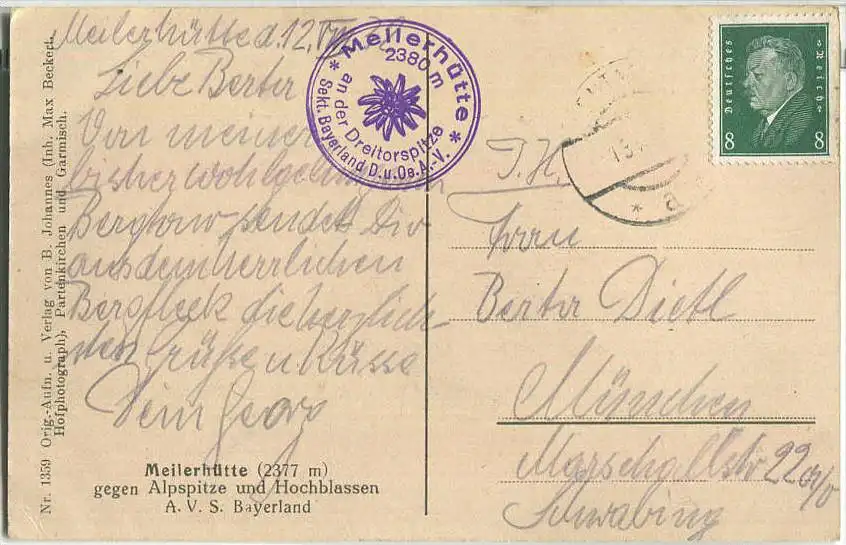 Meilerhütte d. 12.
Liebe Berta
Von meiner
bisher wohlgelungenen
Bergtour sendet Dir
aus dem herrlichen
Bergfleck die herzlich-
sten Grüße u Küsse
Dein Georg
Meilerhütte (2377 m)
gegen Alpspitze und Hochblassen
A. V. S. Bayerland
Nr. 1359 Orig.-Aufn. u. Verlag von B. Johannes (Inh. Max Beckert,
Hofphotograph), Partenkirchen und Garmisch.
* Meilerhütte *
2380 m
an der Dreitorspitze
Sekt. Bayerland D.u.Oe.A.-V.
Deutsches Reich
8 8
Frau
Berta Dietl
München
Marschallstr 22
Schwabing